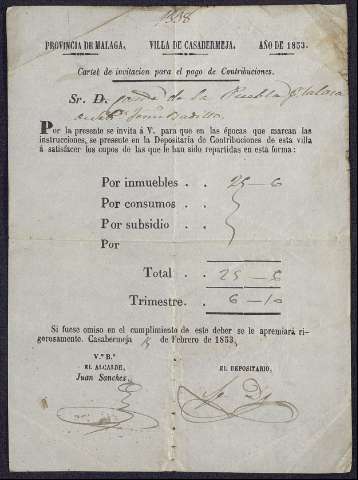 1558
PROVINCIA DE MALAGA. VILLA DE CASABERMEJA. AÑO DE 1853.
Cartel de invitacion para el pago de Contribuciones.
Sr. D. de la Puebla
Badillo
Por la presente se invita á V. para que en las épocas que marcan las
instrucciones, se presente en la Depositaria de Contribuciones de esta villa
á satisfacer los cupos de las que le han sido repartidas en esta forma:
Por inmuebles . . 25-6
Por consumos . .
Por subsidio . .
Por
Total . . 25-6
Trimestre . . 6-10
Si fuese omiso en el cumplimiento de este deber se le apremiará ri-
gorosamente. Casabermeja de Febrero de 1853.
V.º B.º
EL ALCALDE, EL DEPOSITARIO,
Juan Sanchez